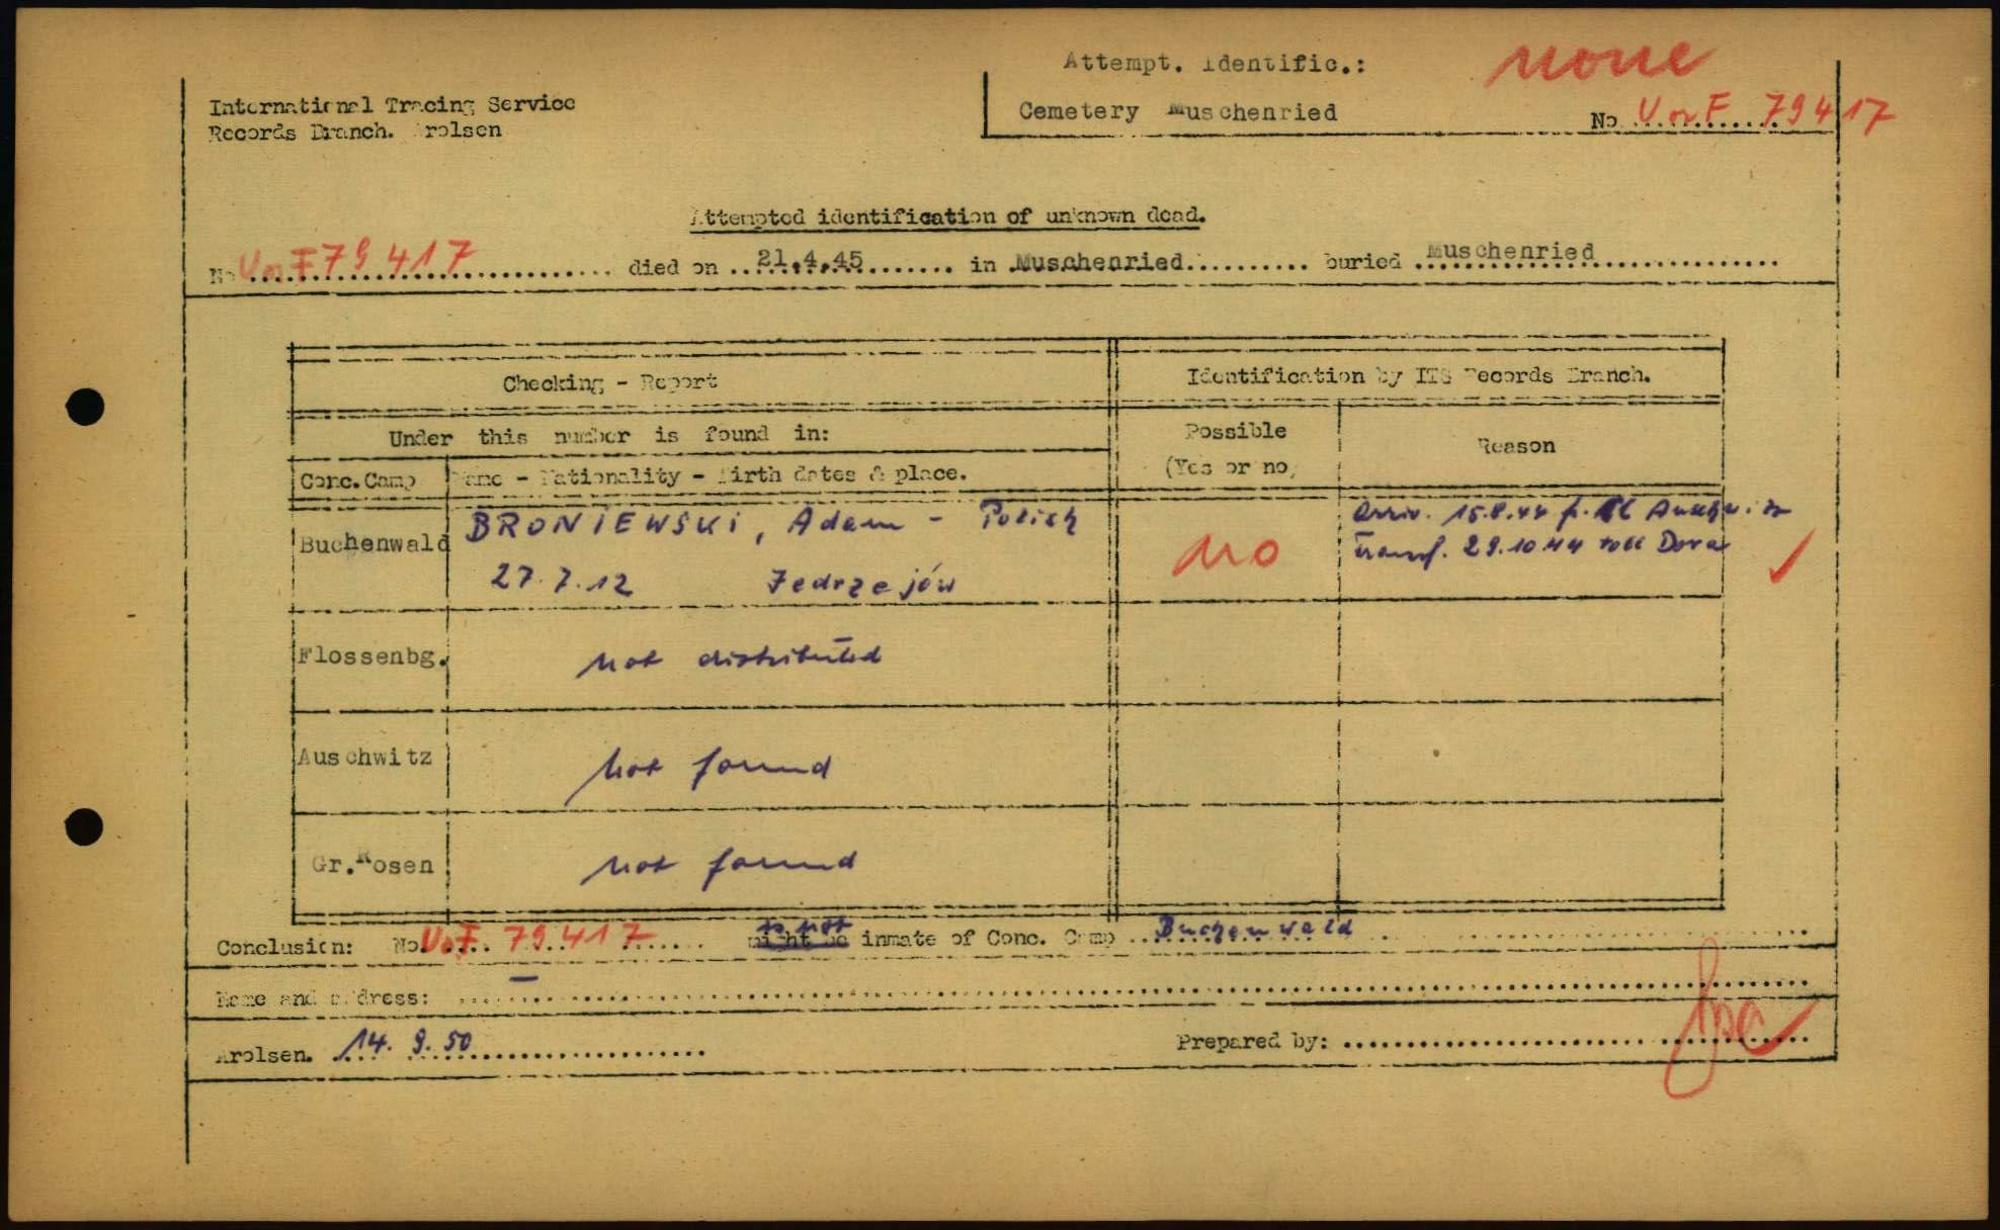 Attempt. Identific.: none
International Tracing Service
Records Branch. Arolsen
Cemetery Muschenried No V or F 79417
Attempted identification of unknown dead.
No V or F 79417 died on 21.4.45 in Muschenried buried Muschenried
Checking - Report Identification by ITS Records Branch.
Under this number is found in: Possible (Yes or no) Reason
Conc.Camp Name - Nationality - Birth dates & place.
Buchenwald BRONIEWSKI, Adam - Polish no Arriv. 15.8.44 f. CC Auschwitz
27.7.12 Jedrzejów Transf. 29.10.44 to CC Dora
Flossenbg. not distributed
Auschwitz not found
Gr.Rosen not found
is not
Conclusion: No. V or F 79417 might be inmate of Conc. Camp Buchenwald
Name and address: —
Arolsen. 14. 9. 50 Prepared by: